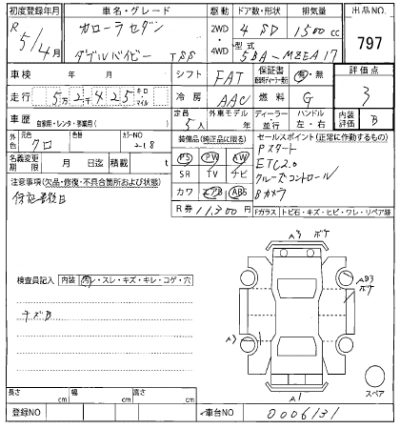 初度登録年月 車名・グレード 駆動 ドア数・形状 排気量 出品NO.
R 5/4月 カローラセダン 2WD・4WD 4 SD 1500 cc 797
ダブルバイビー
型式 5BA-MZEA17
車検 年 月 シフト FAT 保証書 有・無 評価点
走行 5万2千425 キロ・マイル 冷房 AAC 燃料 G 3
定員 5人 外車モデル 年 ディーラー・並行 ハンドル 左・右 内装評価 B
車歴 自家用・レンタ・事業用( )
外色 元色 クロ 現色 カラーNO 218
装備品(純正品に限る) セールスポイント(正常に作動するもの)
PS PW AW Pスタート
名義変更期限 月 日迄 積載 t SR TV ナビ ETC2.0
注意事項(欠品・修復・不具合箇所および状態) カワ エアB ABS クルーズコントロール
Bカメラ
R券 11,300円
Fガラス トビ石・キズ・ヒビ・ワレ・リペア跡
検査員記入 内装 汚レ・スレ・キズ・キレ・コゲ・穴
A3
A1
スペア
長さ cm 幅 cm 高さ cm
登録NO 車台NO 0006131